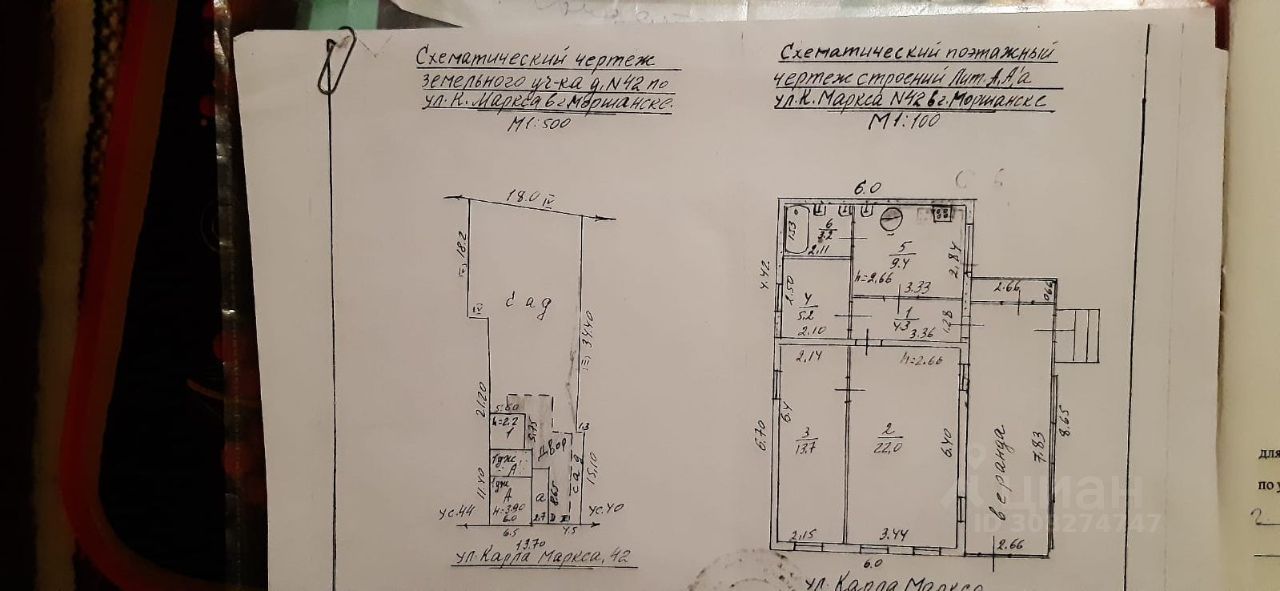 Схематический чертеж
земельного уч-ка д. N42 по
ул. К. Маркса в г. Моршанске.
М 1:500
18.0 IV
18.2
сад
34.40
21.20
5.60
h=2.2
1
5.75
двор
1.3
сад
15.10
1 эж.
А
11.40
1 эж
А
h=3.90
6.0
а
8.65
2.7
ус.44
ус.40
6.5
4.5
13.70
ул. Карла Маркса, 42
Схематический поэтажный
чертеж строений Лит. А, А'а
ул. К. Маркса N42 в г. Моршанске
М 1:100
6.0
153
6
3.2
2.11
5
9.4
h=2.66
2.84
3.33
4.42
2.50
4
5.2
2.10
1
4.3
1.28
3.36
2.66
2.14
h=2.66
6.70
6.4
3
13.7
2
22.0
6.40
веранда
7.83
8.65
2.15
3.44
2.66
6.0
ул. Карла Маркса
циан
ID 308274747
для
по у
2